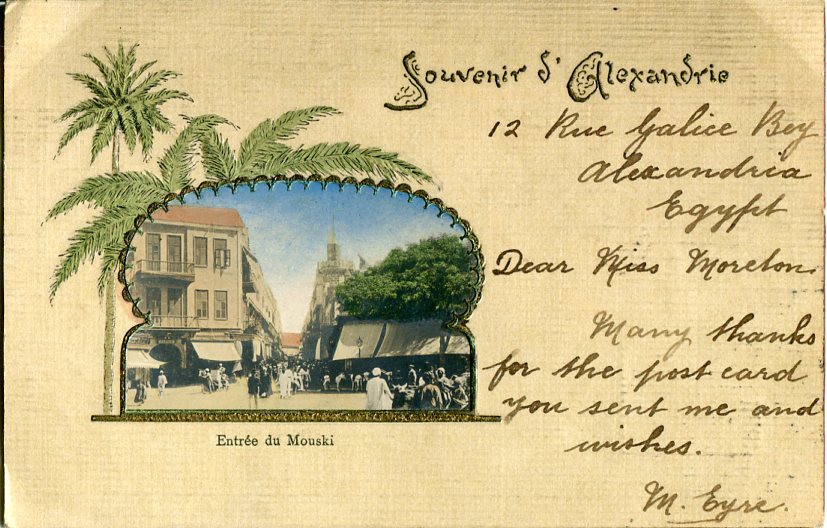 Souvenir d'Alexandrie
12 Rue Galice Bey
Alexandria
Egypt
Dear Miss Moreton.
Many thanks
for the post card
you sent me and
wishes.
M. Eyre.
Entrée du Mouski